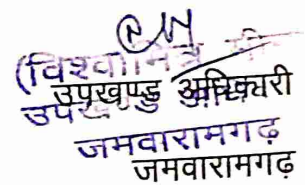 (विश्वामित्र
उपखण्ड अधिकारी
उपखण्ड
जमवारामगढ़
जमवारामगढ़